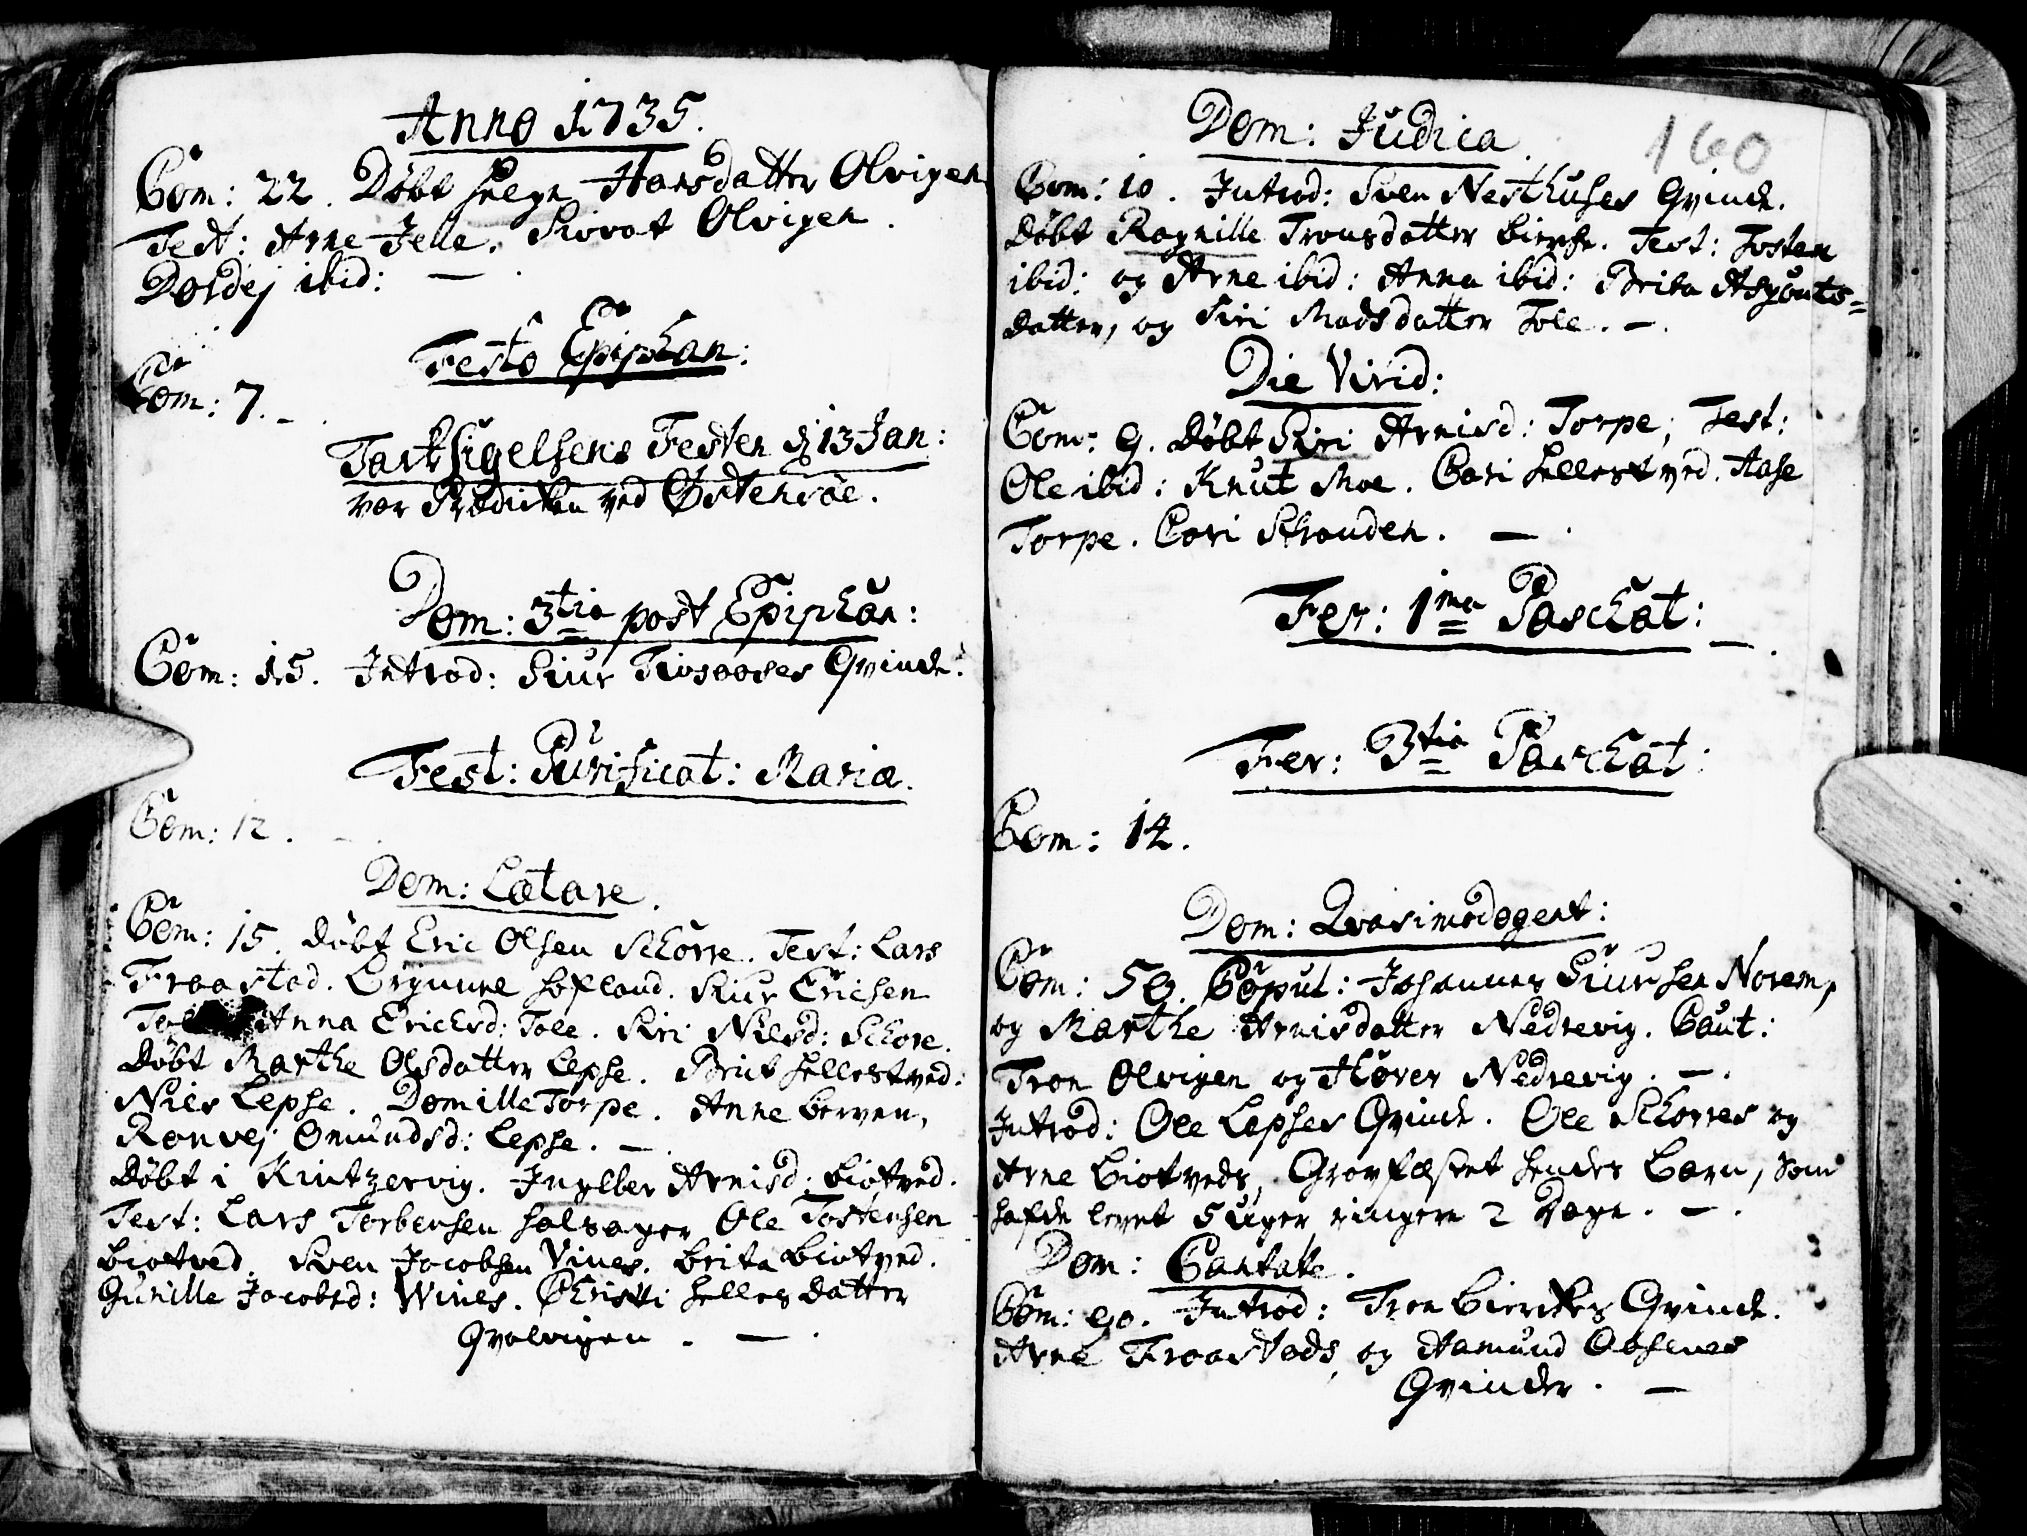 Anno 1735.
Com: 22. Døbt Helge Hansdatter Olvigen
Test: Arne Jelle. Sivat Olvigen.
Dordej ibid: —.
Festo Epiphan:
Com: 7. –.
Tacksigelsens Festen d 13 Jan:
var Prædicken ved Østensøe.
Dom: 3tia post Epiphan:
Com: 15. Introd: Siur Qvinde.
Fest: Purificat: Mariæ.
Com: 12. –.
Dom: Lætare.
Com: 15. Døbt Eric Olsen Schorre. Test: Lars
Fraastad. Brynnel Hofland. Siur Erichsen
Tole Anna Erichsd: Tole. Siri Nielsd: Schore.
Døbt Marthe Olsdatter Lepse. Brit Hellestved:
Niels Lepse. Domille Torpe. Anne Berven,
Ronvej Omundsd: Lepse. —
Døbt i Kintzervig. Ingeber Arnisd: Biotved.
Test: Lars Torbensen Halsager Ole Tostensen
Biotved. Sven Jacobsen Vines. Brita Biotved.
Gunille Jacobsd: Wines. Christi Hellesdatter
Qvalvigen. —.
160
Dom: Judica.
Com: 10. Introd: Sven Nesthuses Qvinde.
Døbt Ragnille Tronsdatter Bircke. Test: Tosten
ibid: og Arne ibid: Anna ibid: Brita Asgouts=
datter, og Siri Madsdatter Tole. –.
Die Virid:
Com: 9. Døbt Siri Arnisd: Torpe; Test:
Ole ibid: Knut Moe. Cari Hellestved. Aase
Torpe. Cari Stranden. —.
Fer: 1ma Paschat: —.
Fer: 3tia Paschat:
Com: 14.
Dom: Qvasimodogent:
Com: 59. Copul: Johannes Siursen Norem,
og Marthe Arnisdatter Nedrevig. Caut:
Tron Olvigen og Hover Nedrevig. –.
Introd: Ole Lepses Qvinde. Ole Schorres og
Arne Biotveds, Gravfæstet hendes Barn, som
hafde levet 5 Uger ringere 2 Dage. –.
Dom: Cantate.
Com: 90. Introd: Tron Birckes Qvinde.
Arne Fraastads, og Aamund
Qvinder. —